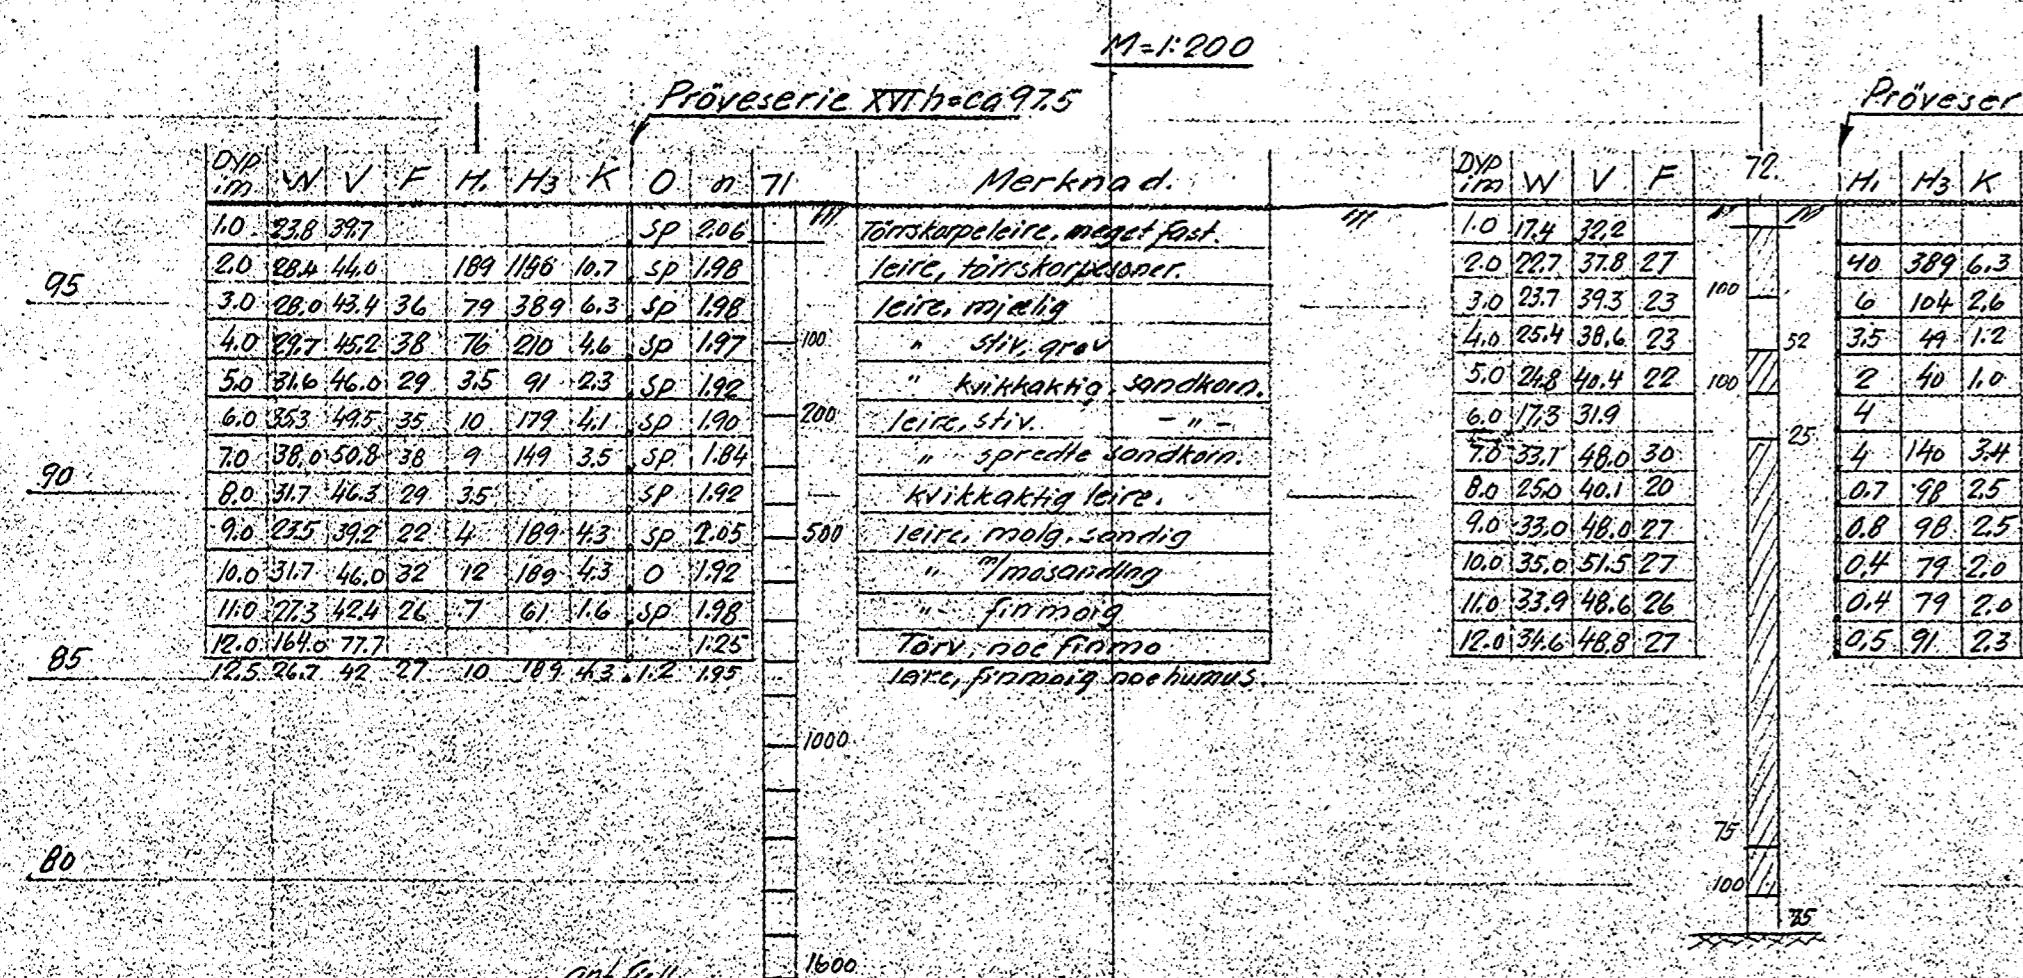 M=1:200
Pröveserie XVI h=ca 97.5
Pröveser
DYP i m W V F H1 H3 K O n 71 Merknad.
DYP i m W V F 72. H1 H3 K
1.0 23.8 39.7 sp 2.06 Törrskorpeleire, meget fast.
2.0 28.4 44.0 189 1186 10.7 sp 1.98 leire, törrskorpesoner.
3.0 28.0 43.4 36 79 389 6.3 sp 1.98 leire, mjælig
4.0 29.7 45.2 38 76 210 4.6 sp 1.97 " stiv, grov
5.0 31.6 46.0 29 3.5 91 2.3 sp 1.92 " kvikkaktig, sandkorn.
6.0 35.3 49.5 35 10 179 4.1 sp 1.90 leire, stiv. - " -
7.0 38.0 50.8 38 9 149 3.5 sp 1.84 " spredte sandkorn.
8.0 31.7 46.3 29 3.5 sp 1.92 kvikkaktig leire.
9.0 23.5 39.2 22 4 189 4.3 sp 2.05 leire, moig, sandig
10.0 31.7 46.0 32 12 189 4.3 O 1.92 " m/mosanding
11.0 27.3 42.4 26 7 61 1.6 sp 1.98 " finmoig
12.0 164.0 77.7 1.25 Törv, noe finmo
12.5 26.7 42 27 10 189 4.3 1.2 1.95 leire, finmoig noe humus.
100
200
500
1000
1600
95
90
85
80
1.0 17.4 32.2
2.0 22.7 37.8 27 40 389 6.3
3.0 23.7 39.3 23 6 104 2.6
4.0 25.4 38.6 23 3.5 49 1.2
5.0 24.8 40.4 22 2 40 1.0
6.0 17.3 31.9 4
7.0 33.7 48.0 30 4 140 3.4
8.0 25.0 40.1 20 0.7 98 2.5
9.0 33.0 48.0 27 0.8 98 2.5
10.0 35.0 51.5 27 0.4 79 2.0
11.0 33.9 48.6 26 0.4 79 2.0
12.0 34.6 48.8 27 0.5 91 2.3
100
52
100
25
75
100
25